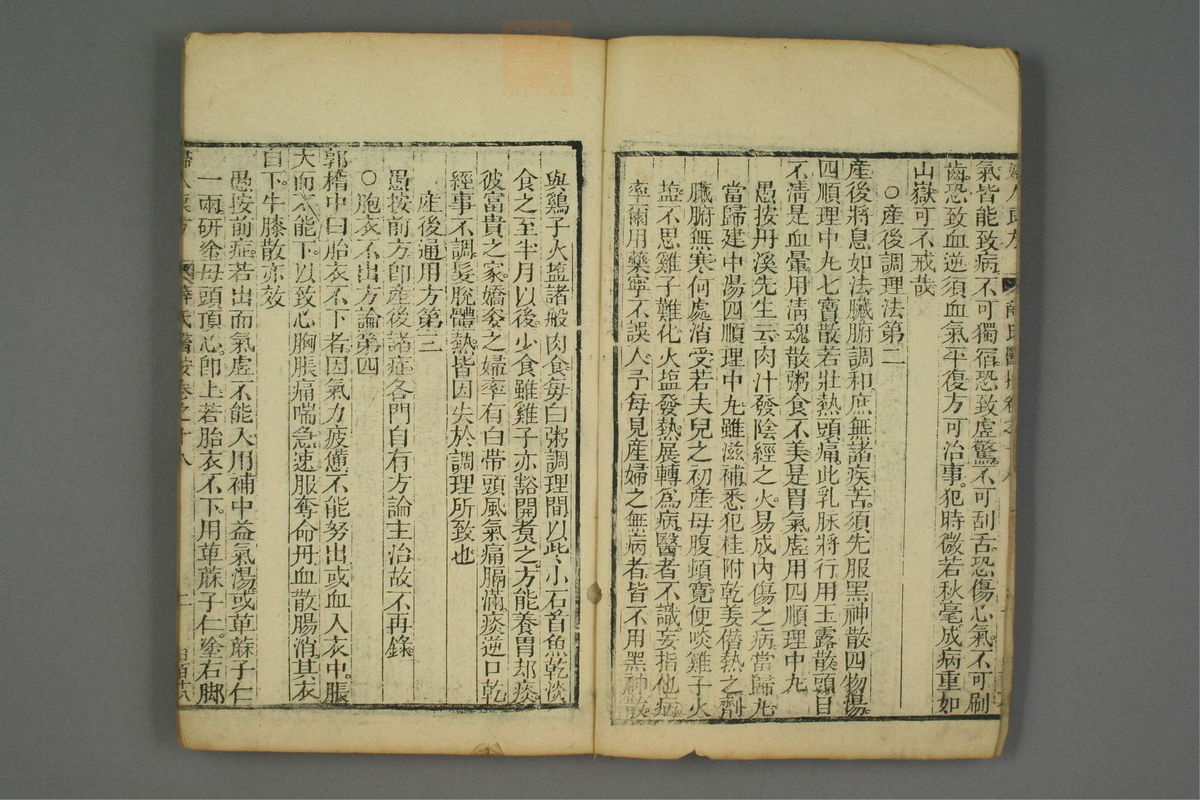 氣皆能致病不可獨宿恐致虛驚不可刮舌恐傷心氣不可刷
齒恐致血逆須血氣平復方可治事犯時微若秋毫成病重如
山嶽可不戒哉
○産後調理法第二
産後將息如法臟腑調和庶無諸疾苦須先服黑神散四物湯
四順理中丸七寶散若壯熱頭痛此乳脉將行用玉露散頭目
不清是血暈用清魂散粥食不美是胃氣虛用四順理中丸
愚按丹溪先生云肉汁發陰經之火易成內傷之病當歸丸
當歸建中湯四順理中丸雖滋補悉犯桂附乾姜僭熱之劑
臟腑無寒何處消受若夫兒之初産母腹頓寛便啖雞子火
塩不思雞子難化火塩發熱展轉爲病醫者不識妄指他病
率爾用藥寧不誤人予每見産婦之無病者皆不用黑神散
與鷄子火塩諸般肉食每白粥調理間以此小石首魚乾淡
食之至半月以後少食雖雞子亦豁開煑之方能養胃却痰
彼富貴之家嬌柰之婦率有白帶頭風氣痛膈滿痰逆口乾
經事不調髮脫體熱皆因失於調理所致也
産後通用方第三
愚按前方即産後諸症各門自有方論主治故不再錄
○胞衣不出方論第四
郭稽中曰胎衣不下者因氣力疲憊不能努出或血入衣中脹
大而不能下以致心胸脹痛喘急速服奪命丹血散脹消其衣
自下牛膝散亦效
愚按前症若出而氣虛不能入用補中益氣湯或萆蔴子仁
一兩研塗母頭頂心即上若胎衣不下用萆蔴子仁塗右脚